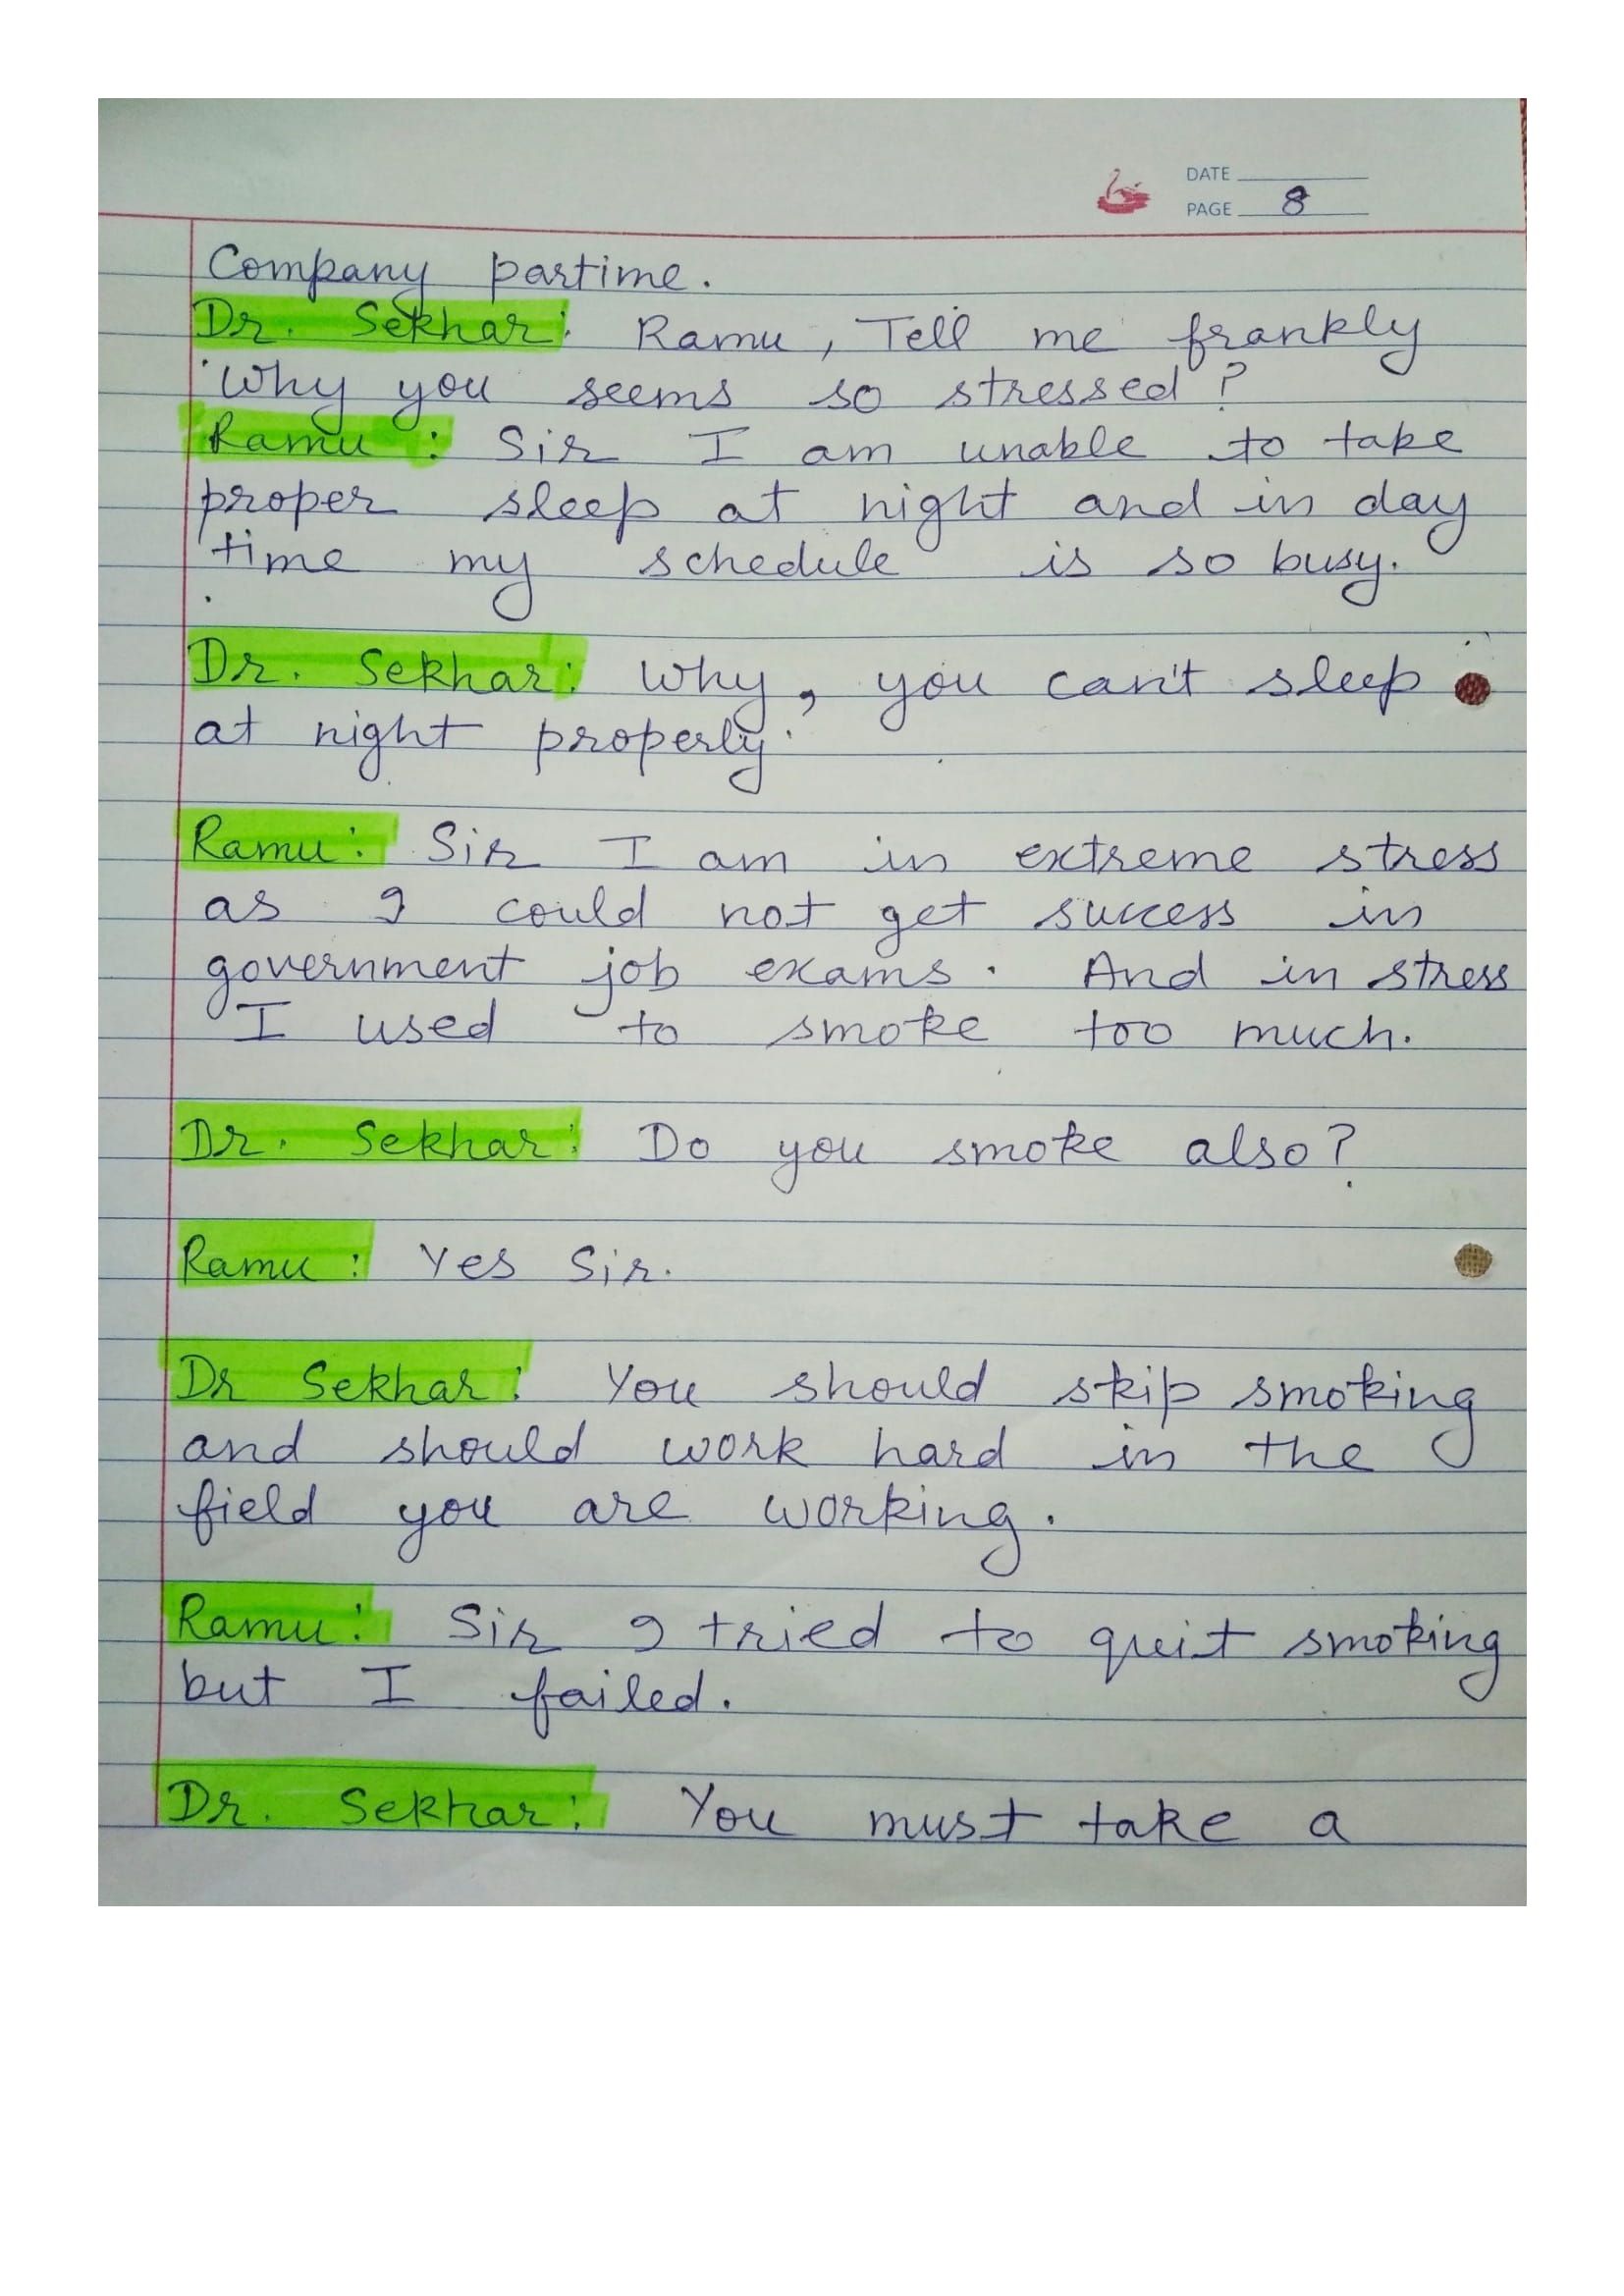 DATE
PAGE 8
Company partime.
Dr. Sekhar: Ramu, Tell me frankly
Why you seems so stressed?
Ramu : Sir I am unable to take
proper sleep at night and in day
time my schedule is so busy.
Dr. Sekhar: Why, you can't sleep
at night properly.
Ramu: Sir I am in extreme stress
as I could not get success in
government job exams. And in stress
I used to smoke too much.
Dr. Sekhar: Do you smoke also?
Ramu: Yes Sir.
Dr Sekhar: You should skip smoking
and should work hard in the
field you are working.
Ramu: Sir I tried to quit smoking
but I failed.
Dr. Sekhar: You must take a